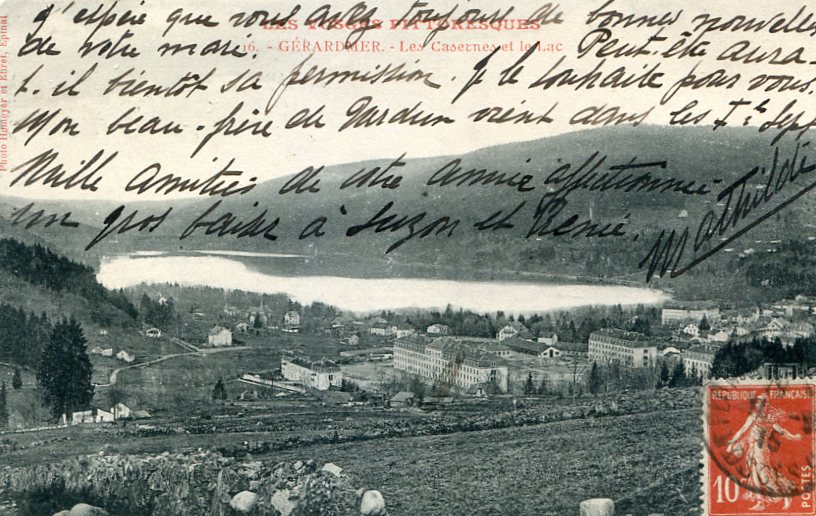 LES VOSGES PITTORESQUES
16. - GÉRARDMER. - Les Casernes et le Lac
j'espère que vous avez toujours de bonnes nouvelles
de votre mari. Peut-être aura-
t-il bientôt sa permission. Je le souhaite pour vous.
Mon beau-frère de Verdun vient dans les 1ers Sept
Mille Amitiés de votre amie affectionnée
Un gros baiser à Suzon et René.
Mathilde
Photo Homeyer et Ehret, Epinal
REPUBLIQUE FRANÇAISE
10
POSTES